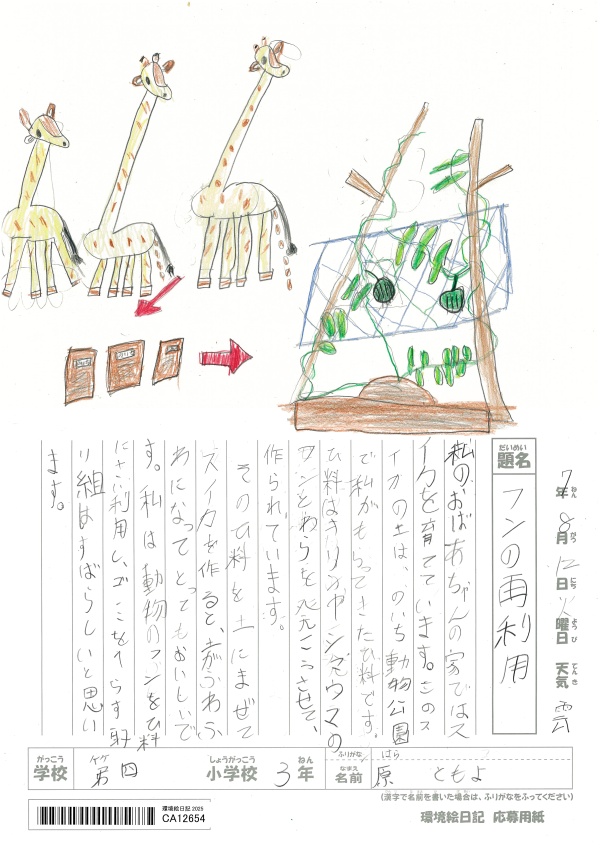 7年8月12日火曜日 天気 雲
ねん がつ にち ようび てんき
だいめい
題名 フンの再利用
私のおばあちゃんの家ではス
イカを育てています。このス
イカの土は、のいち動物公園
で私がもらってきたひ料です。
ひ料はキリンやシマウマの
フンとわらを発こうさせて、
作られています。
そのひ料を土にまぜて
スイカを作ると、土がふわふ
わになってとってもおいしいで
す。私は動物のフンをひ料
に再利用し、ゴミをへらす取
り組はすばらしいと思い
ます。
がっこう
学校 第四
しょうがっこう
小学校 3年
ねん
ふりがな はら
なまえ
名前 原 ともよ
(漢字で名前を書いた場合は、ふりがなをふってください)
環境絵日記 2025
CA12654
環境絵日記 応募用紙